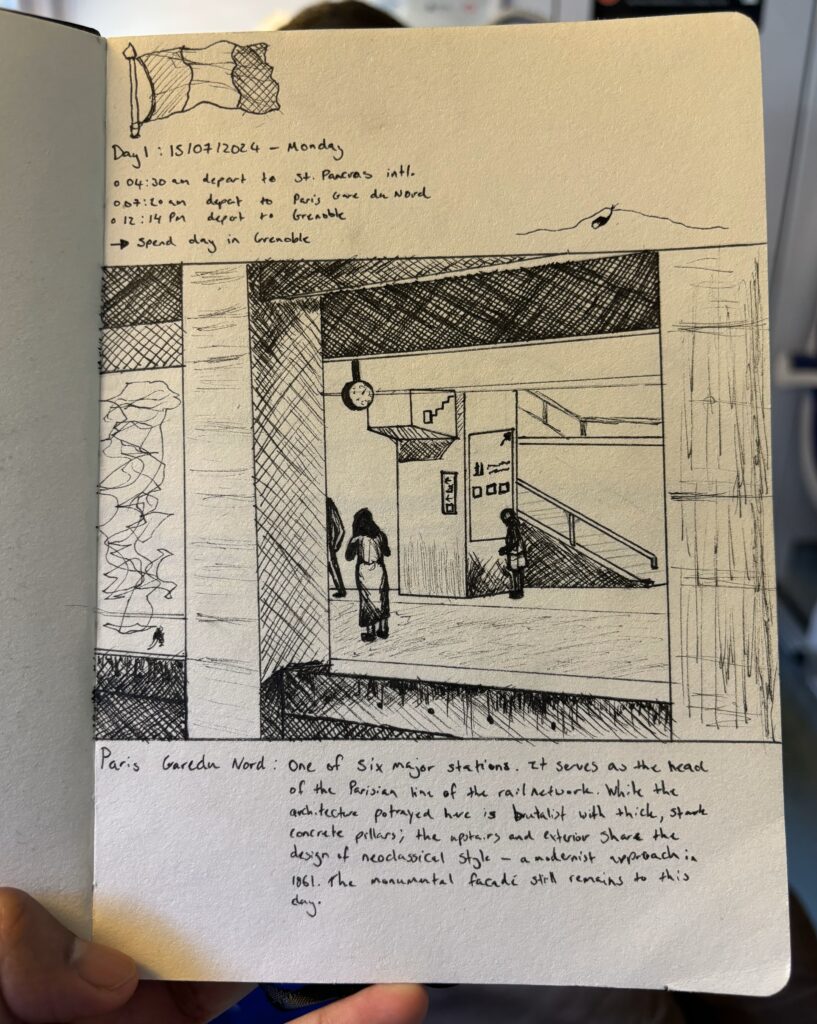 Day 1 : 15/07/2024 - Monday
o 04:30 am depart to St. Pancras intl.
o 07:20 am depart to Paris Gare du Nord
o 12:14 PM depart to Grenoble
→ Spend day in Grenoble
Paris Gare du Nord : One of six major stations. It serves as the head
of the Parisian line of the rail network. While the
architecture potrayed here is brutalist with thick, stark
concrete pillars; the upstairs and exterior share the
design of neoclassical style - a modernist approach in
1861. The monumental facadé still remains to this
day.